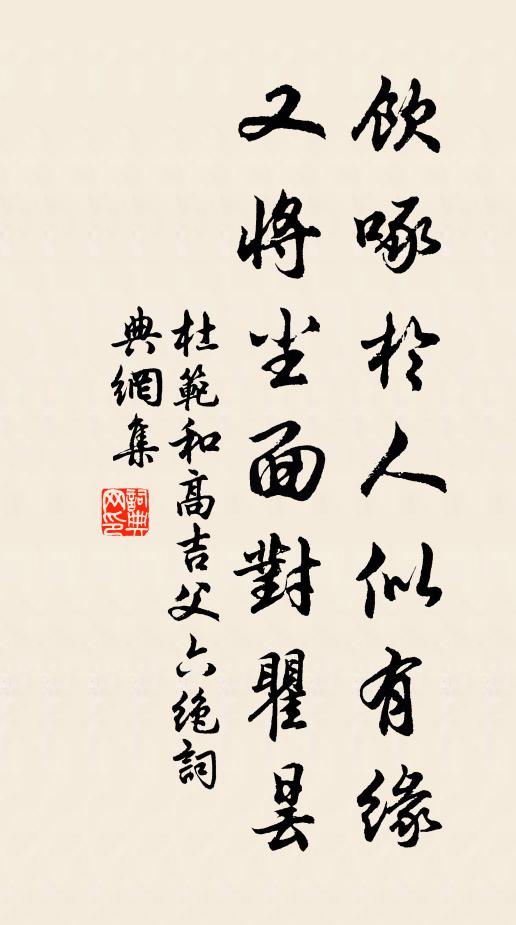 飲啄於人似有緣
又將塵面對瞿曇
杜範和高吉父六絶詞
典網集
詞典网印